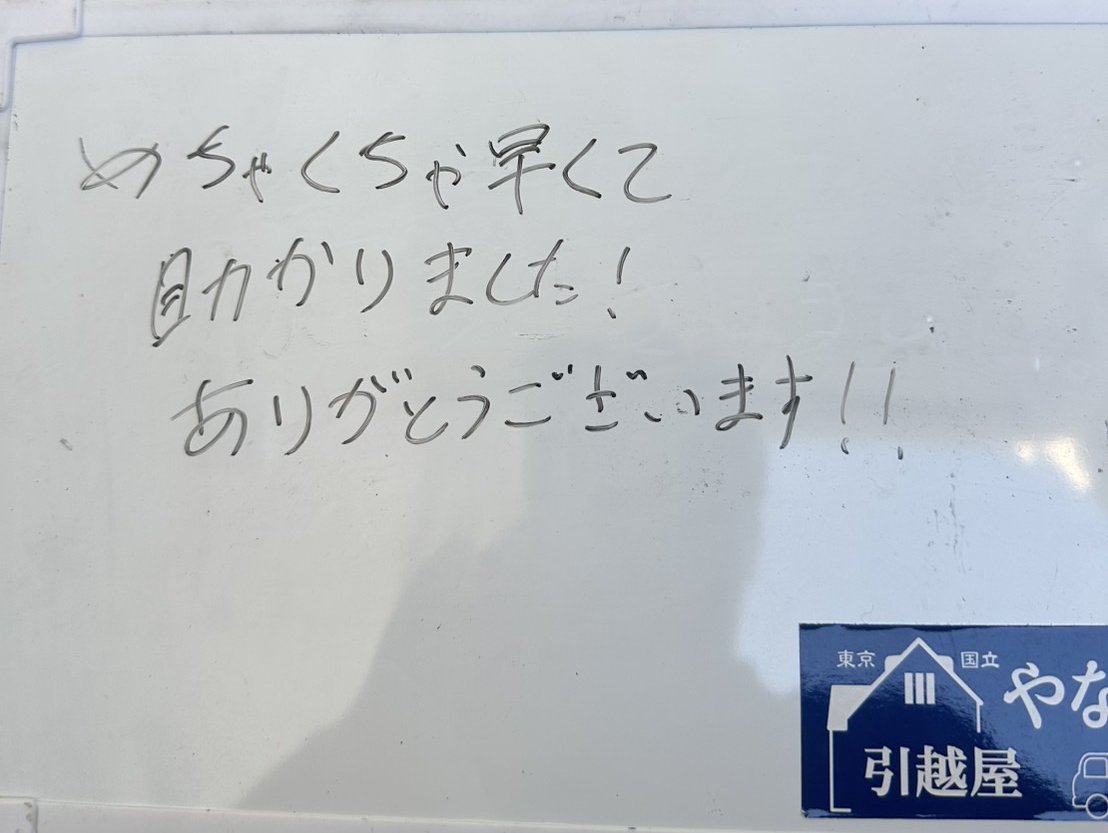 めちゃくちゃ早くて
助かりました!
ありがとうございます!!
東京 国立
やな
引越屋